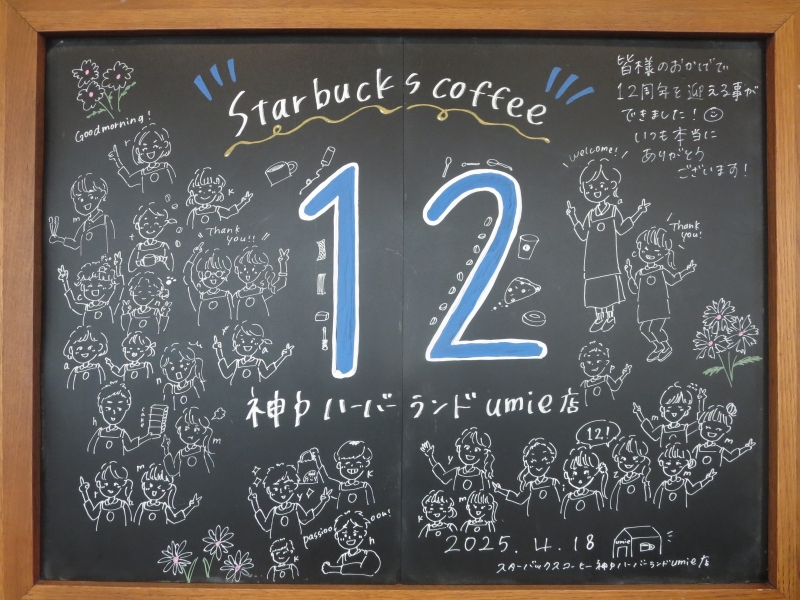 Starbucks coffee
皆様のおかげで
12周年を迎える事が
できました!
いつも本当に
ありがとう
ございます!
Good morning!
welcome!
k
m
Thank
you!!
Thank
you!
12
神戸ハーバーランドumie店
a
a
n
h
CAFE
m
r
m
k
y
passion
ooh!
h
k
12!
m
m
k
m
2025.4.18
umie
スターバックスコーヒー神戸ハーバーランドumie店